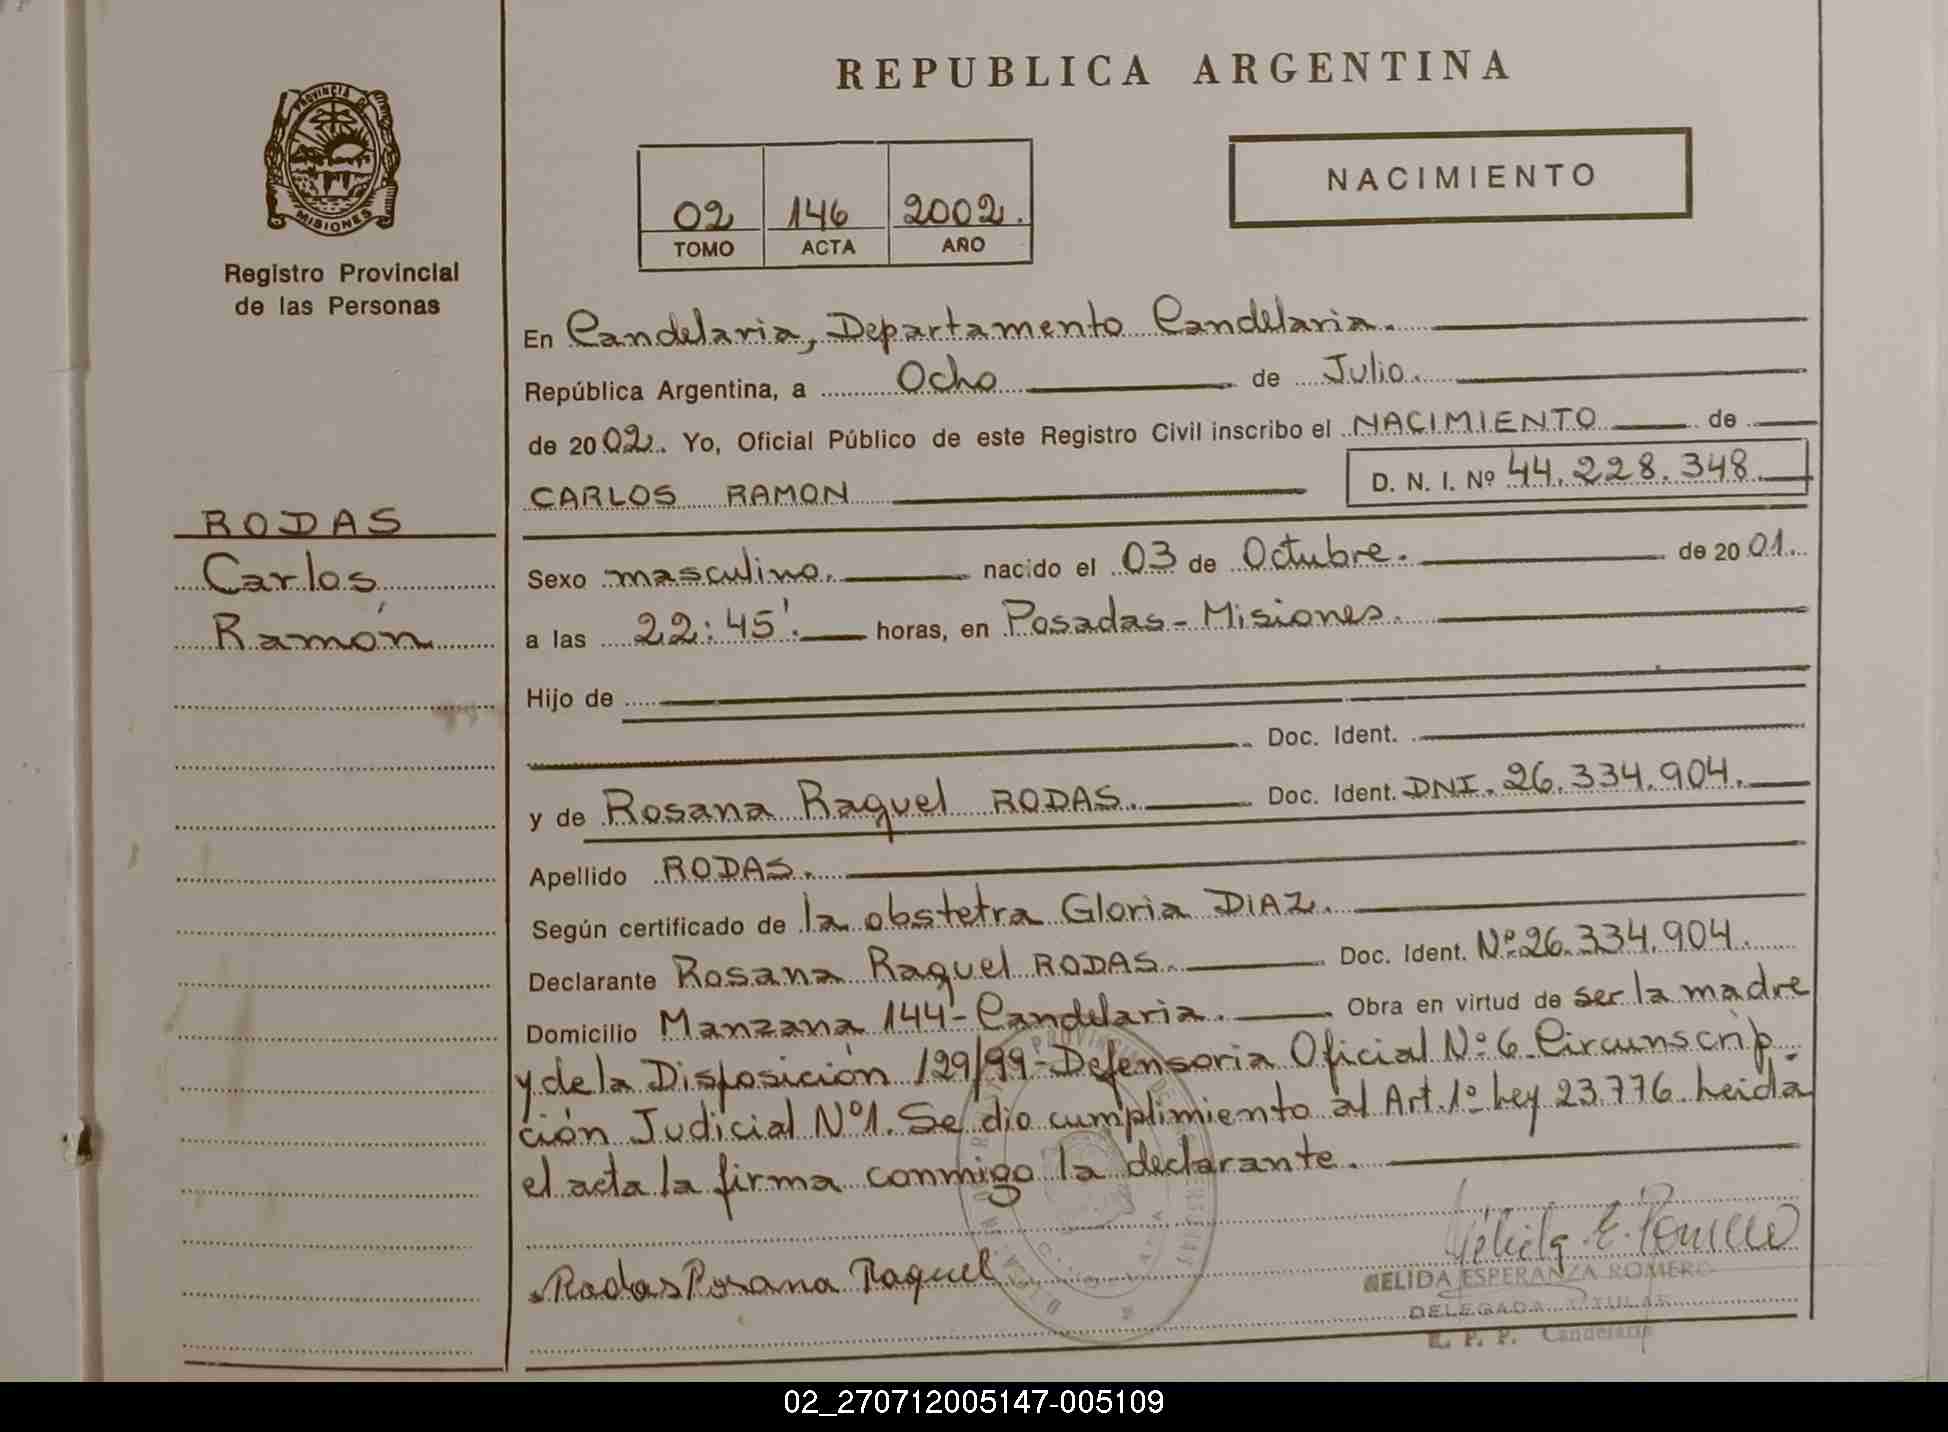 REPUBLICA ARGENTINA
PROVINCIA DE
MISIONES
Registro Provincial
de las Personas
02 146 2002.
TOMO ACTA AÑO
NACIMIENTO
En Candelaria, Departamento Candelaria.
República Argentina, a Ocho de Julio.
de 2002. Yo, Oficial Público de este Registro Civil inscribo el NACIMIENTO de
CARLOS RAMON D. N. I. Nº 44.228.348.
RODAS
Carlos
Ramón
Sexo masculino. nacido el 03 de Octubre. de 2001.
a las 22:45'. horas, en Posadas - Misiones.
Hijo de
Doc. Ident.
y de Rosana Raquel RODAS. Doc. Ident. DNI. 26.334.904.
Apellido RODAS.
Según certificado de la obstetra Gloria DIAZ.
Declarante Rosana Raquel RODAS. Doc. Ident. Nº 26.334.904.
Domicilio Manzana 144 - Candelaria. Obra en virtud de ser la madre
y de la Disposición 129/99 - Defensoria Oficial Nº 6 Circunscrip-
ción Judicial Nº 1. Se dio cumplimiento al Art. 1º Ley 23.776. Leida
el acta la firma conmigo la declarante.
Rodas Rosana Raquel
NELIDA ESPERANZA ROMERO
DELEGADA TITULAR
R. P. P. Candelaria
02_270712005147-005109